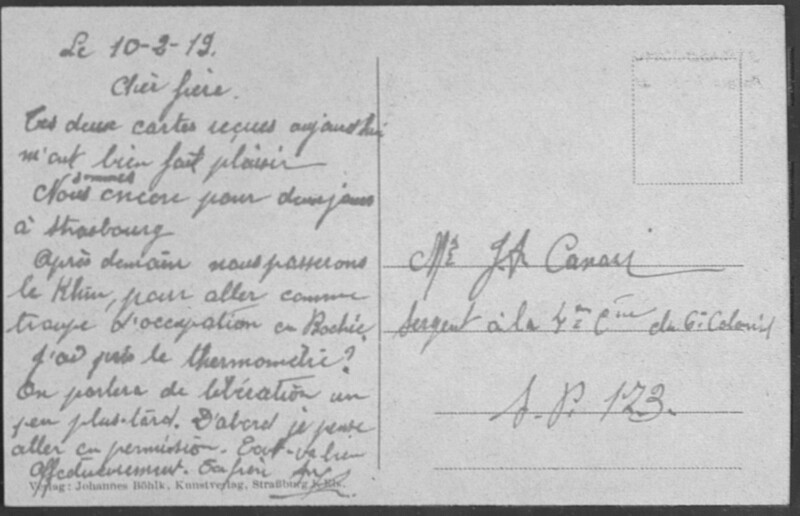 Le 10-2-19.
Cher frère.
Tes deux cartes reçues aujourd'hui
m'ont bien fait plaisir
Nous sommes encore pour deux jours
à Strasbourg
Après demain nous passerons
le Rhin, pour aller comme
troupe d'occupation en Bochie.
le thermomètre?
On parlera de libération un
peu plus tard. D'abord je pense
aller en permission. bien
Affectueusement. Ton frère
Verlag: Johannes Böhlk, Kunstverlag, Straßburg i. Els.
Mr J.A. Canari
Sergent à la 4me Cie du 6e Colonial
S. P. 123.